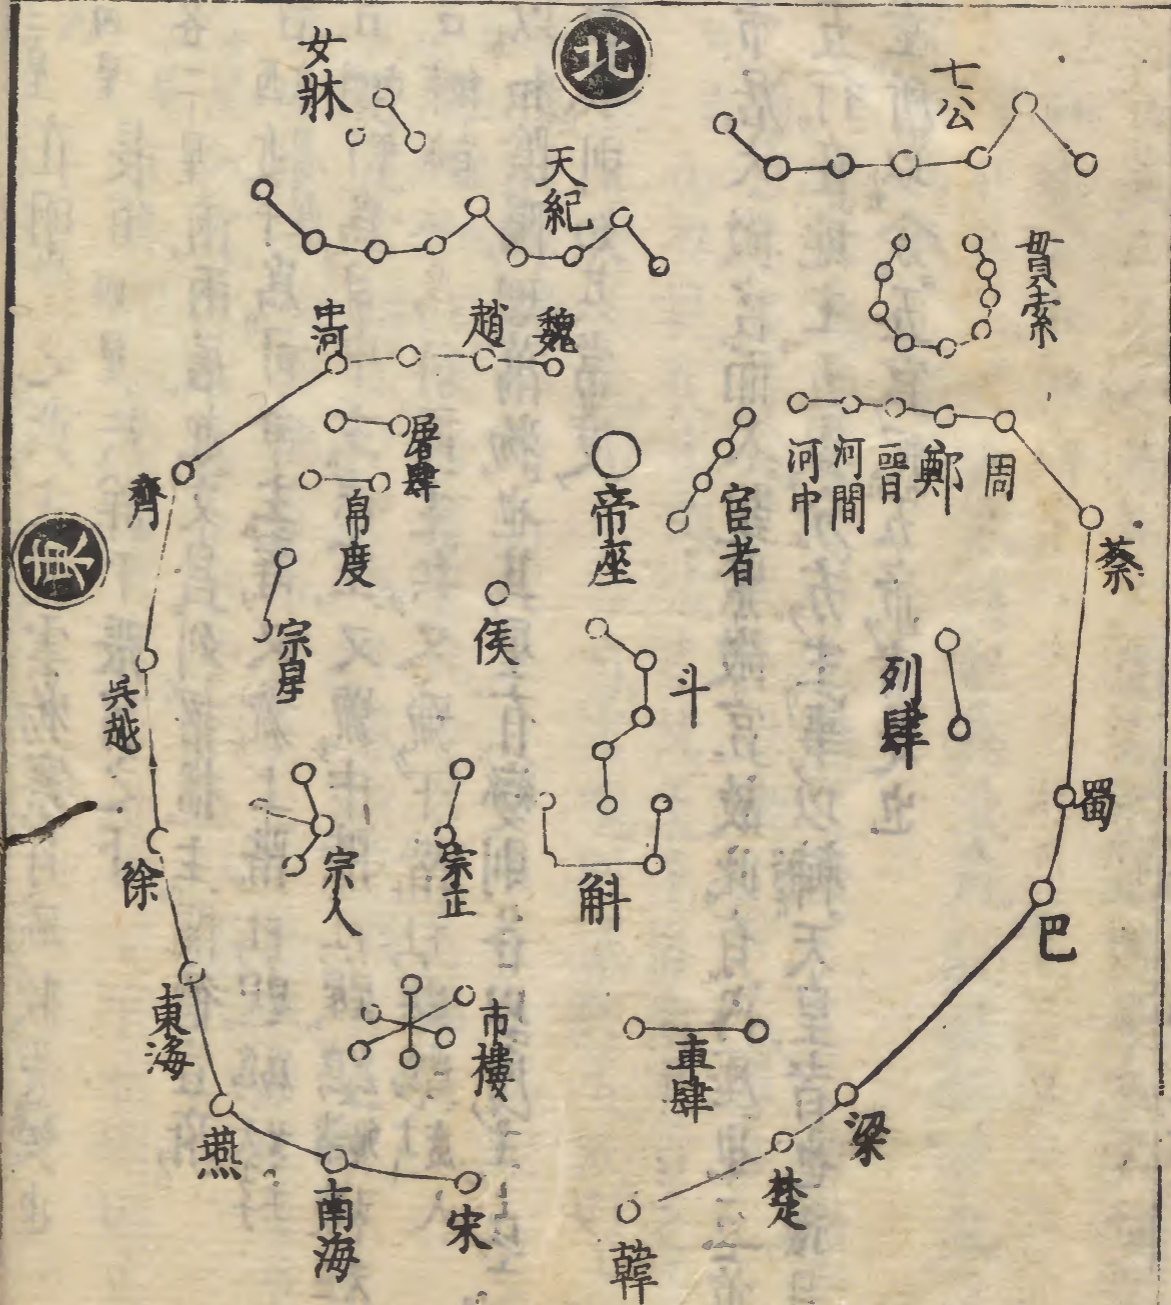 北
七公
貫索
女牀
天紀
魏
趙
中河
屠肆
帛度
帝座
宦者
河中
河間
晉
鄭
周
蔡
齊
東
宗星
侯
斗
列肆
吳越
蜀
徐
宗人
宗正
斛
巴
東海
市樓
車肆
梁
燕
南海
宋
楚
韓